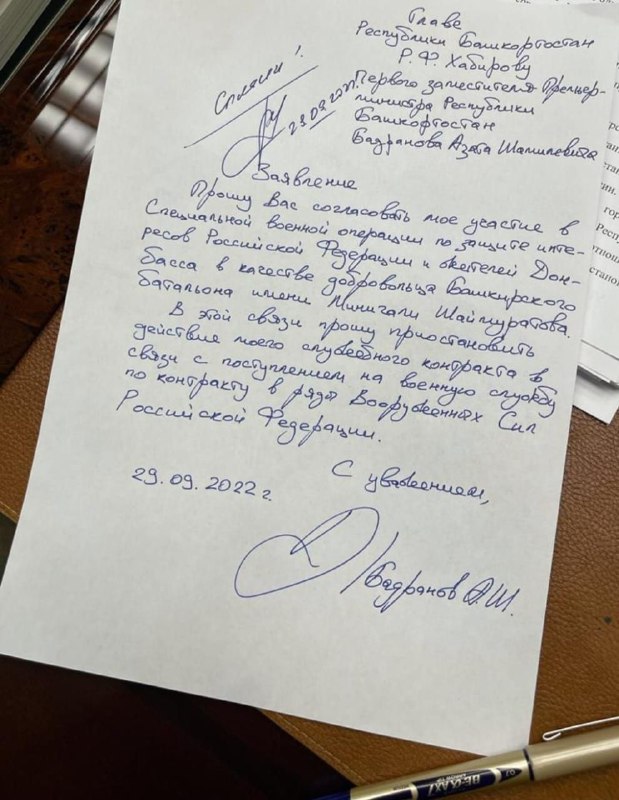 Главе
Республики Башкортостан
Р.Ф. Хабирову
Первого заместителя Премьер-
министра Республики
Башкортостан
Бадранова Азата Шамилевича
29.09.2022г.
Заявление
Прошу Вас согласовать мое участие в
Специальной военной операции по защите инте-
ресов Российской Федерации и жителей Дон-
басса в качестве добровольца Башкирского
батальона имени Минигали Шаймуратова.
В этой связи прошу приостановить
действие моего служебного контракта в
связи с поступлением на военную службу
по контракту в ряды Вооруженных Сил
Российской Федерации.
С уважением,
29.09.2022 г.
Бадранов А.Ш.